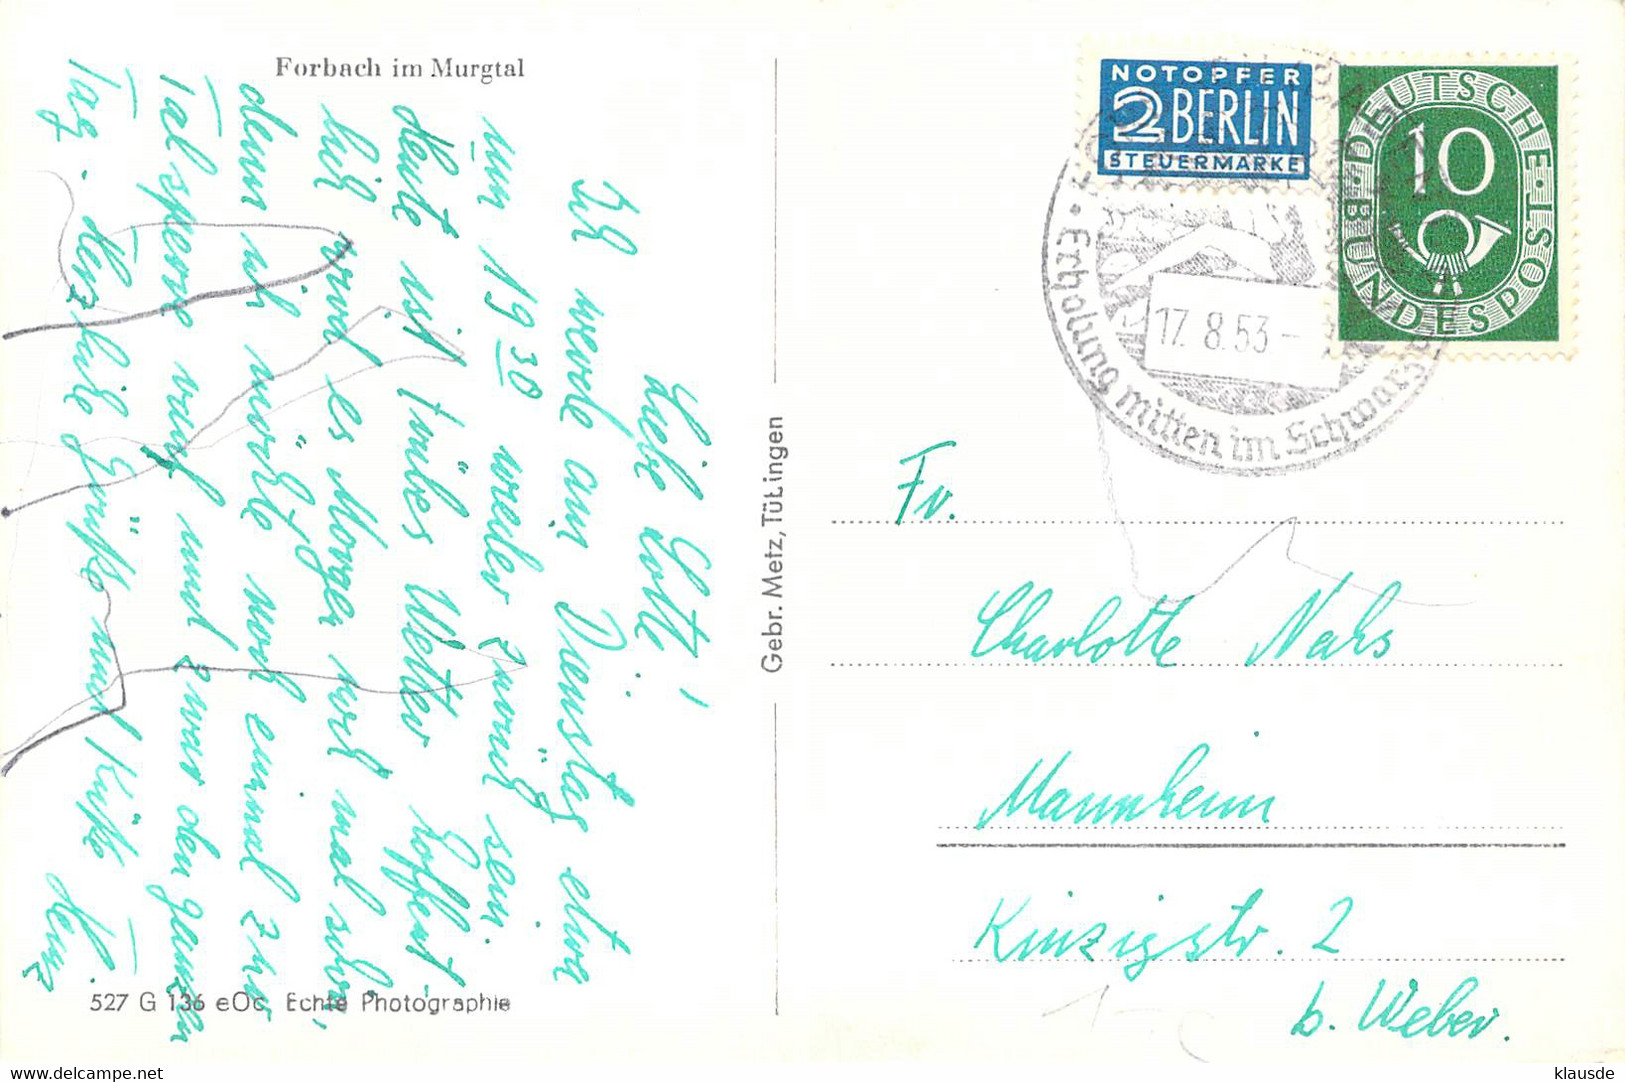 Forbach im Murgtal
Liebe Lotte!
Ich werde am Dienstag etwa
um 19 30 wieder zurück sein.
Heute ist trübes Wetter. Hoffent-
lich wird es Morgen noch mal schön,
denn ich möchte noch einmal zur
Talsperre rauf und zwar den ganzen
Tag. Herzliche Grüße und Küße Heinz
527 G 136 eOc. Echte Photographie
Gebr. Metz, Tübingen
NOTOPFER
2 BERLIN
STEUERMARKE
DEUTSCHE BUNDESPOST
10
17. 8. 53 -
Erholung mitten im Schwarz
Fr.
Charlotte Nahs
Mannheim
Kinzigstr. 2
b. Weber.
klausde